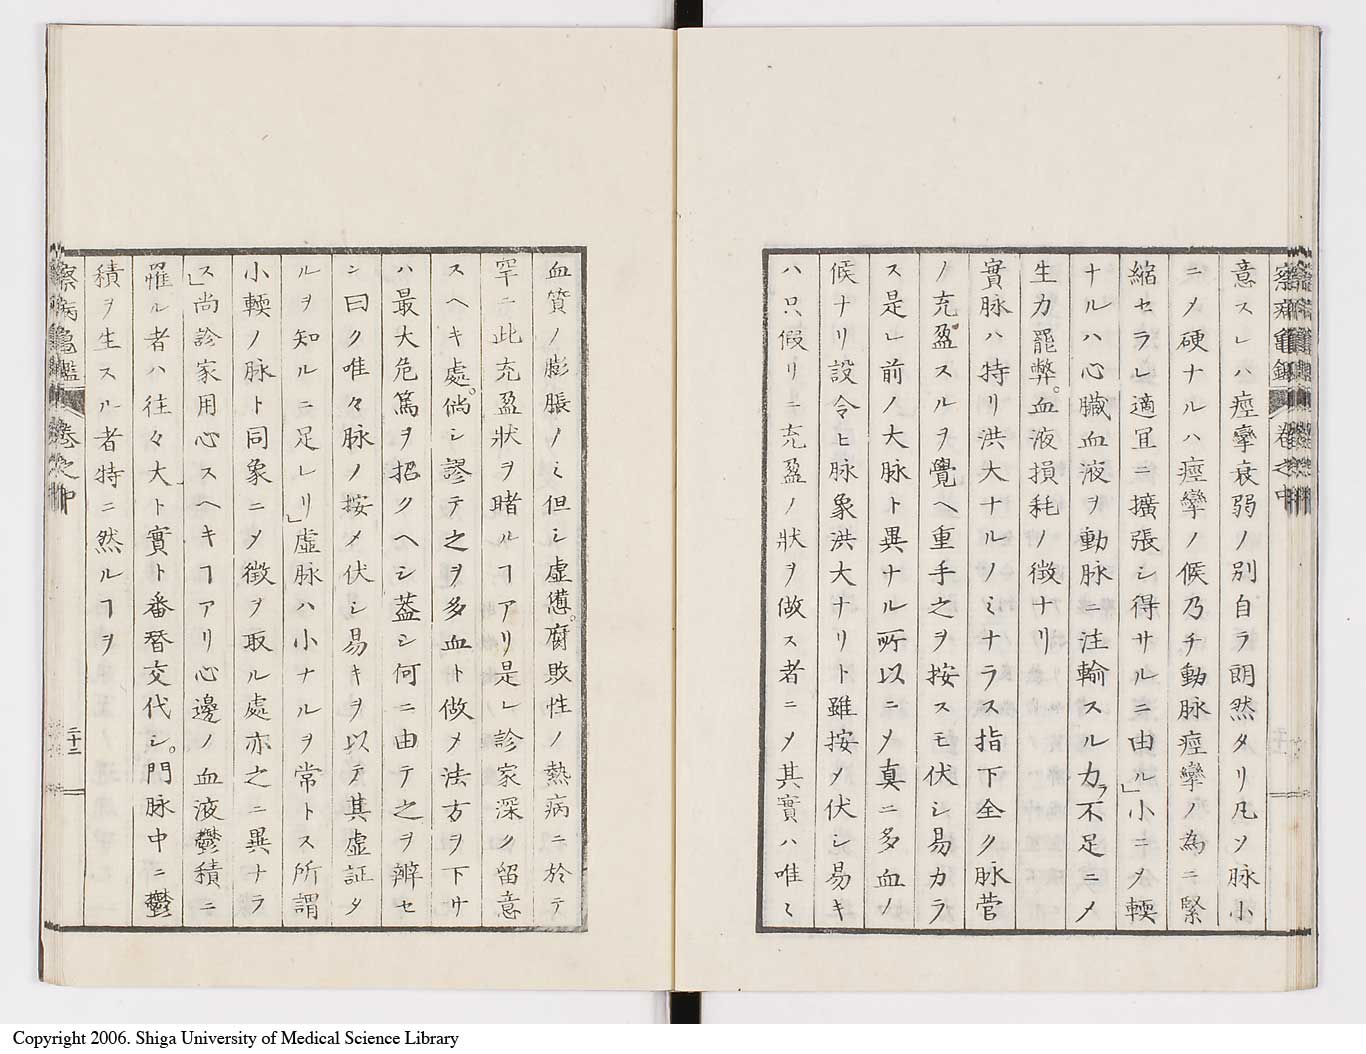 察病亀鑑 卷之中
意スレハ痙攣衰弱ノ別自ラ朗然タリ凡ソ脉小
ニメ硬ナルハ痙攣ノ候乃チ動脉痙攣ノ為ニ緊
縮セラレ適宜ニ擴張シ得サルニ由ル」小ニメ輭
ナルハ心臓血液ヲ動脉ニ注輸スル力ラ不足ニメ
生力罷弊。血液損耗ノ徴ナリ
實脉ハ特リ洪大ナルノミナラス指下全ク脉菅
ノ充盈スルヲ覺ヘ重手之ヲ按スモ伏シ易カラ
ス是レ前ノ大脉ト異ナル所以ニメ真ニ多血ノ
候ナリ設令ヒ脉象洪大ナリト雖按メ伏シ易キ
ハ只假リニ充盈ノ狀ヲ做ス者ニメ其實ハ唯ミ
血質ノ膨脹ノミ但シ虚憊。腐敗性ノ熱病ニ於テ
罕ニ此充盈狀ヲ睹ルヿアリ是レ診家深ク留意
スヘキ處。倘シ謬テ之ヲ多血ト做メ法方ヲ下サ
ハ最大危篤ヲ招クヘシ葢シ何ニ由テ之ヲ辨セ
ン曰ク唯々脉ノ按メ伏シ易キヲ以テ其虚証タ
ルヲ知ルニ足レリ」虚脉ハ小ナルヲ常トス所謂
小輭ノ脉ト同象ニメ徴ヲ取ル處亦之ニ異ナラ
ス」尚診家用心スヘキヿアリ心邊ノ血液鬱積ニ
罹ル者ハ往々大ト實ト番替交代シ。門脉中ニ鬱
積ヲ生スル者特ニ然ルヿヲ
察病亀鑑 卷之中
二十二
Copyright 2006. Shiga University of Medical Science Library